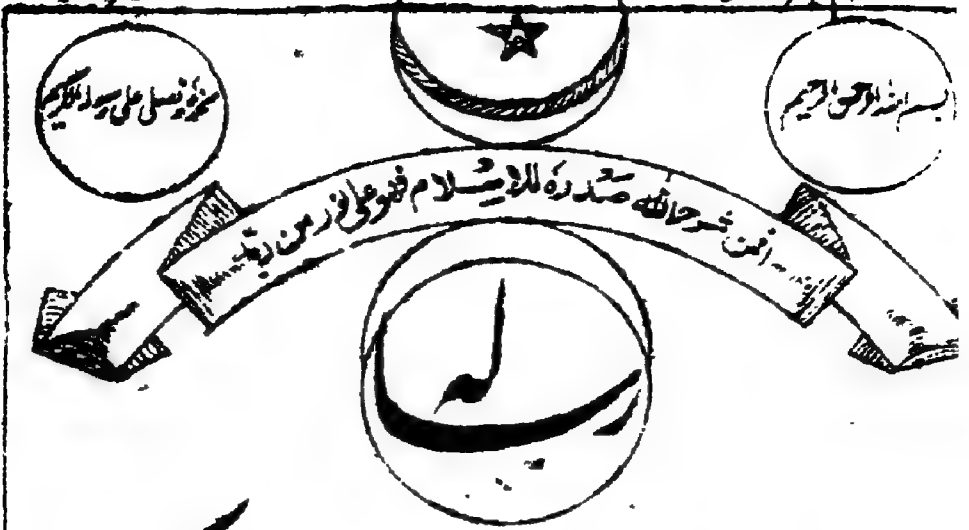 بسم اللہ الرحمن الرحیم
نحمدہ ونصلی علی رسولہ الکریم
افمن شرح اللہ صدرہ للاسلام فھو علی نور من ربہ
رسالہ